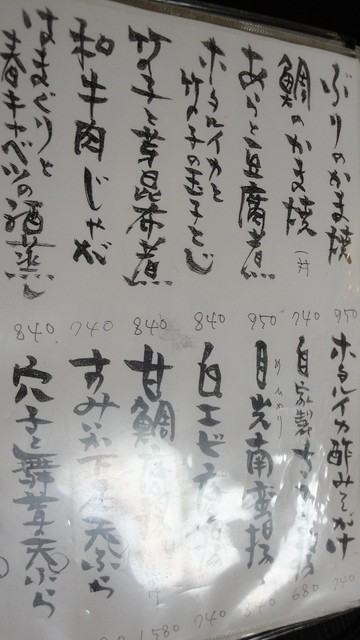 ぶりのかま焼
950
鯛のかま焼 一ヶ
740
あらと豆腐煮
950
ホタルイカと
竹の子の玉子とじ
840
竹の子と芽昆布煮
840
和牛肉じゃが
740
はまぐりと
春キャベツの酒蒸し
840
ホタルイカ酢みそがけ
740
自家製
680
目光南蛮揚
めひかり
840
白エビ
740
甘鯛
1580
天ぷら
穴子と舞茸の天ぷら